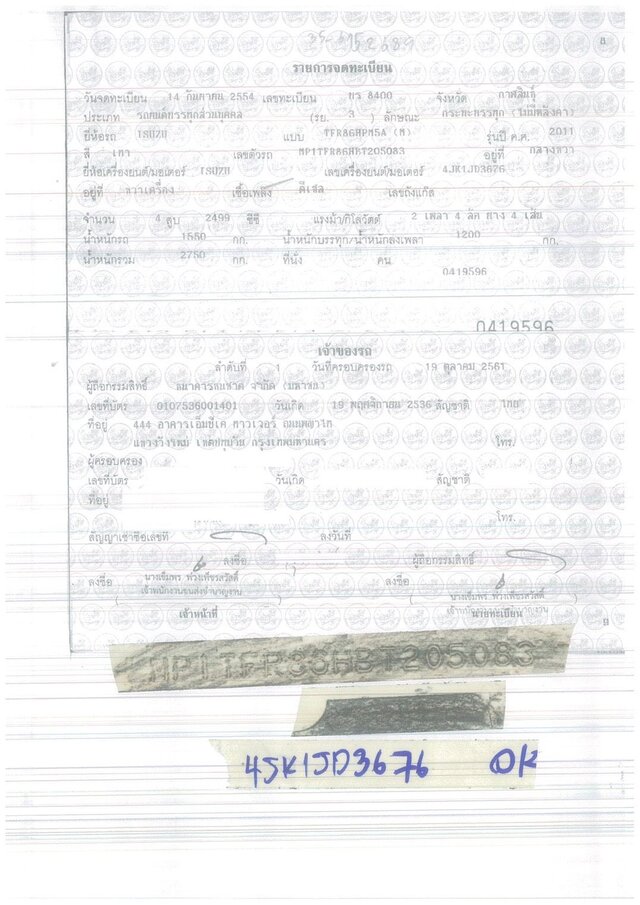 8
รายการจดทะเบียน
วันจดทะเบียน 14 กันยายน 2554 เลขทะเบียน 8400 จังหวัด กาฬสินธุ์
ประเภท รถยนต์บรรทุกส่วนบุคคล (รย. 3 ) ลักษณะ กระบะบรรทุก (ไม่มีหลังคา)
ยี่ห้อรถ ISUZU แบบ รุ่นปี ค.ศ. 2011
สี เทา เลขตัวรถ อยู่ที่ กลางขวา
ยี่ห้อเครื่องยนต์/มอเตอร์ ISUZU เลขเครื่องยนต์/มอเตอร์ 4JK1JD3676
อยู่ที่ ขวาเครื่อง เชื้อเพลิง ดีเซล เลขถังแก๊ส
จำนวน 4 สูบ 2499 ซีซี แรงม้า/กิโลวัตต์ 2 เพลา 4 ล้อ ยาง 4 เส้น
น้ำหนักรถ 1550 กก. น้ำหนักบรรทุก/น้ำหนักลงเพลา 1200 กก.
น้ำหนักรวม 2750 กก. ที่นั่ง คน
0419596
0419596
เจ้าของรถ
ลำดับที่ 1 วันที่ครอบครองรถ 19 ตุลาคม 2561
ผู้ถือกรรมสิทธิ์ ธนาคารธนชาต จำกัด (มหาชน)
เลขที่บัตร 0107536001401 วันเกิด 19 พฤศจิกายน 2536 สัญชาติ ไทย
ที่อยู่ 444 อาคารเอ็มบีเค ทาวเวอร์ ถนนพญาไท
แขวงวังใหม่ เขตปทุมวัน กรุงเทพมหานคร โทร.
ผู้ครอบครอง
เลขที่บัตร วันเกิด สัญชาติ
ที่อยู่
โทร.
สัญญาเช่าซื้อเลขที่ ลงวันที่
ลงชื่อ ผู้ถือกรรมสิทธิ์
ลงชื่อ นางเข็มพร พ่วงเพ็ชรสวัสดิ์ ลงชื่อ นางเข็มพร พ่วงเพ็ชรสวัสดิ์
( เจ้าพนักงานขนส่งชำนาญงาน ) ( เจ้าพนักงานขนส่งชำนาญงาน )
เจ้าหน้าที่ นายทะเบียน
4JK1JD3676 OK